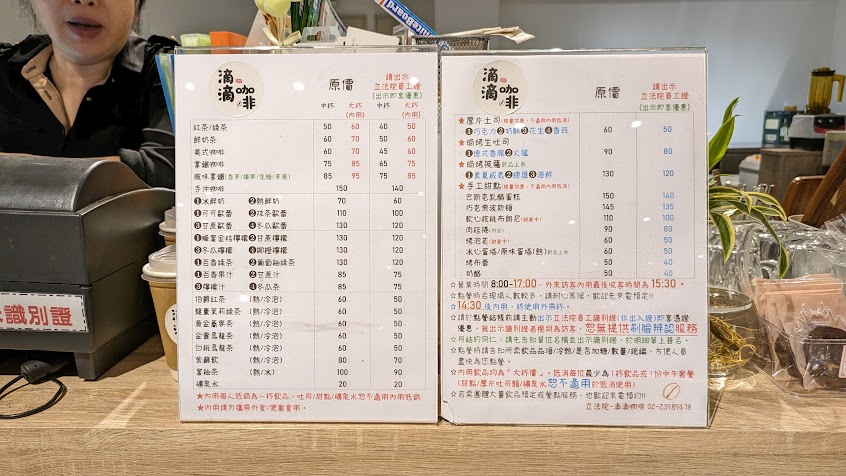 滴滴咖啡
原價
請出示
立法院員工證
(出示即享優惠)
中杯 大杯(內用) 中杯 大杯(內用)
紅茶/綠茶 50 60 40 50
鮮奶茶 60 70 50 60
美式咖啡 60 70 45 60
拿鐵咖啡 75 85 65 75
風味拿鐵 85 95 75 85
手沖咖啡 150 140
❶冰鮮奶 ❷熱鮮奶 70 60
❶可可歐蕾 ❷抹茶歐蕾 110 100
❸甘蔗歐蕾 ❹冬瓜歐蕾 130 120
❶蜂蜜金桔檸檬 ❷甘蔗檸檬
❸冬瓜檸檬 130 120
❶百香綠茶 ❷葡萄柚綠茶 130 120
❶百香果汁 ❷甘蔗汁 85 75
❸檸檬汁 ❹冬瓜茶 85 75
伯爵紅茶 (熱/冷泡) 60 50
馥董茉莉綠茶 (熱/冷泡) 60 50
黃金蕎麥茶 (熱/冷泡) 60 50
金萱烏龍茶 (熱/冷泡) 60 50
白桃烏龍茶 (熱/冷泡) 60 50
紫蘇飲 (熱/冷泡) 80 70
蜜柚茶 (熱/冰) 100 90
礦泉水 20 20
★內用每人低銷為一杯飲品,吐司/甜點/礦泉水恕不適用內用低銷
★內用請勿攜帶外食/便當食用。
滴滴咖啡
原價
請出示
立法院員工證
(出示即享優惠)
★厚片吐司
❶巧克力❷奶酥❸花生❹香蒜 60 50
★焗烤生吐司
❶德式香腸❷火腿 90 80
★焗烤披薩
❶素夏威夷❷總匯❸海鮮 130 120
★手工甜點
巴斯克乳酪蛋糕 150 140
巧克果波斯頓 145 135
軟心核桃布朗尼 110 100
肉桂捲 90 80
烤泡芙 60 50
冰心蛋塔/原味蛋塔(熱) 60 50
烤布蕾 50 40
奶酪 50 40
☆營業時間 8:00-17:00,外來訪客內用最後收客時間為 15:30。
☆點餐時若現場人數較多,請耐心等候,歡迎先來電預訂!!
☆14:30後內用,將使用外帶杯。
☆請於點餐結帳前請主動出示立法院員工識別證(非出入證)即享憑證
優惠,無出示識別證者視同為訪客,恕無提供刷臉辨認服務
☆月結的同仁,請先告知單位名稱並出示識別證,於明細單上簽名。
☆點餐時請告知所需飲品品項/冷熱/是否加糖/數量/統編,方便人員
盡快為您點餐。
☆內用飲品均為"大杯價",低消每位最少為1杯飲品或1份中午套餐
(甜點/厚片吐司類/礦泉水恕不適用於低消使用)
☆若需團體大量飲品預定或餐點服務,也歡迎來電預約!!
立法院-滴滴咖啡 02-23585478
識別證